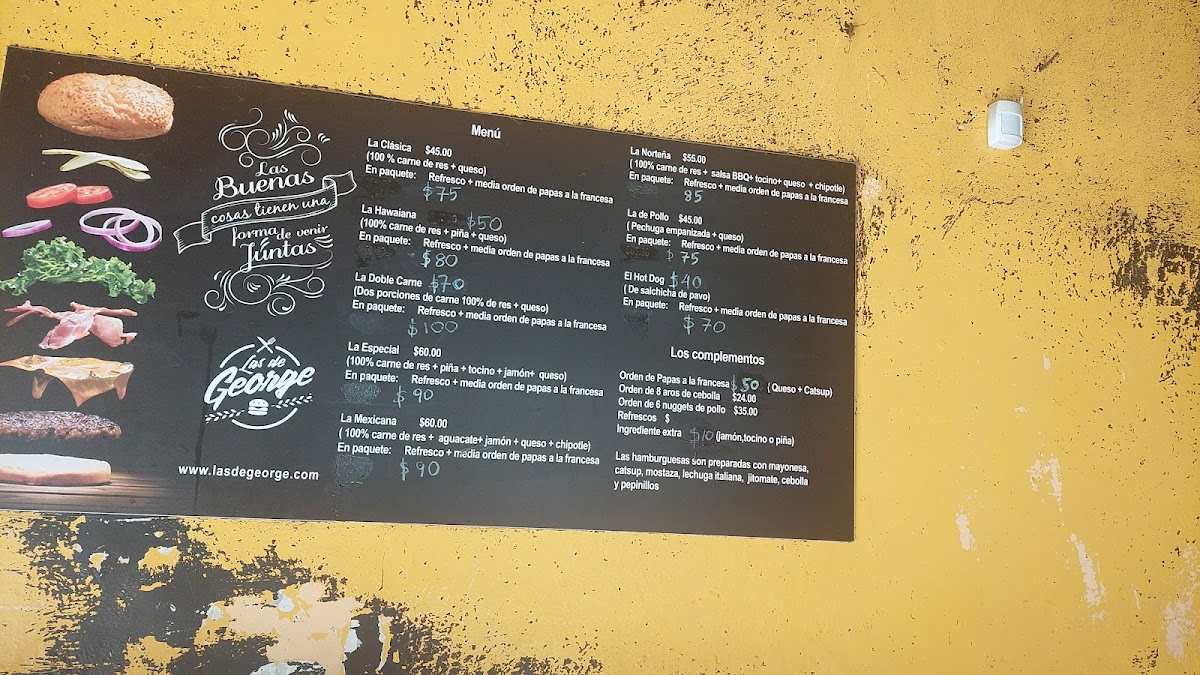 Las
Buenas
cosas tienen una
forma de venir
Juntas
Las de
George
www.lasdegeorge.com
Menú
La Clásica $45.00
(100 % carne de res + queso)
En paquete: Refresco + media orden de papas a la francesa
$75
La Hawaiana $50
(100% carne de res + piña + queso)
En paquete: Refresco + media orden de papas a la francesa
$80
La Doble Carne $70
(Dos porciones de carne 100% de res + queso)
En paquete: Refresco + media orden de papas a la francesa
$100
La Especial $60.00
(100% carne de res + piña + tocino + jamón+ queso)
En paquete: Refresco + media orden de papas a la francesa
$90
La Mexicana $60.00
( 100% carne de res + aguacate+ jamón + queso + chipotle)
En paquete: Refresco + media orden de papas a la francesa
$90
La Norteña $55.00
( 100% carne de res + salsa BBQ+ tocino+ queso + chipotle)
En paquete: Refresco + media orden de papas a la francesa
85
La de Pollo $45.00
( Pechuga empanizada + queso)
En paquete: Refresco + media orden de papas a la francesa
$75
El Hot Dog $40
( De salchicha de pavo)
En paquete: Refresco + media orden de papas a la francesa
$70
Los complementos
Orden de Papas a la francesa $50 ( Queso + Catsup)
Orden de 8 aros de cebolla $24.00
Orden de 6 nuggets de pollo $35.00
Refrescos $
Ingrediente extra $10 (jamón,tocino o piña)
Las hamburguesas son preparadas con mayonesa,
catsup, mostaza, lechuga italiana, jitomate, cebolla
y pepinillos